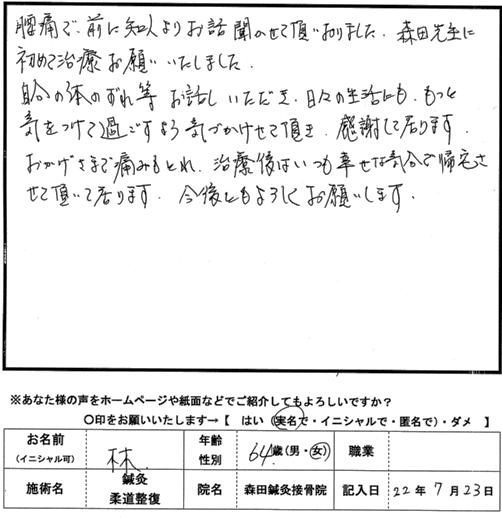 腰痛で、前に知人よりお話聞かせて頂いおりました。森田先生に
初めて治療お願いいたしました。
自分の体のずれ等 お話しいただき、日々の生活にも、もっと
気をつけて過ごすよう気づかせて頂き、感謝して居ります。
おかげさまで痛みもとれ、治療後はいつも幸せな気分で帰宅さ
せて頂いて居ります。今後ともよろしくお願いします。
※あなた様の声をホームページや紙面などでご紹介してもよろしいですか？
〇印をお願いいたします→【　はい（実名で・イニシャルで・匿名で）・ダメ　】
お名前（イニシャル可） 林 年齢 性別 64歳（男・女） 職業
施術名 鍼灸 柔道整復 院名 森田鍼灸接骨院 記入日 22年7月23日